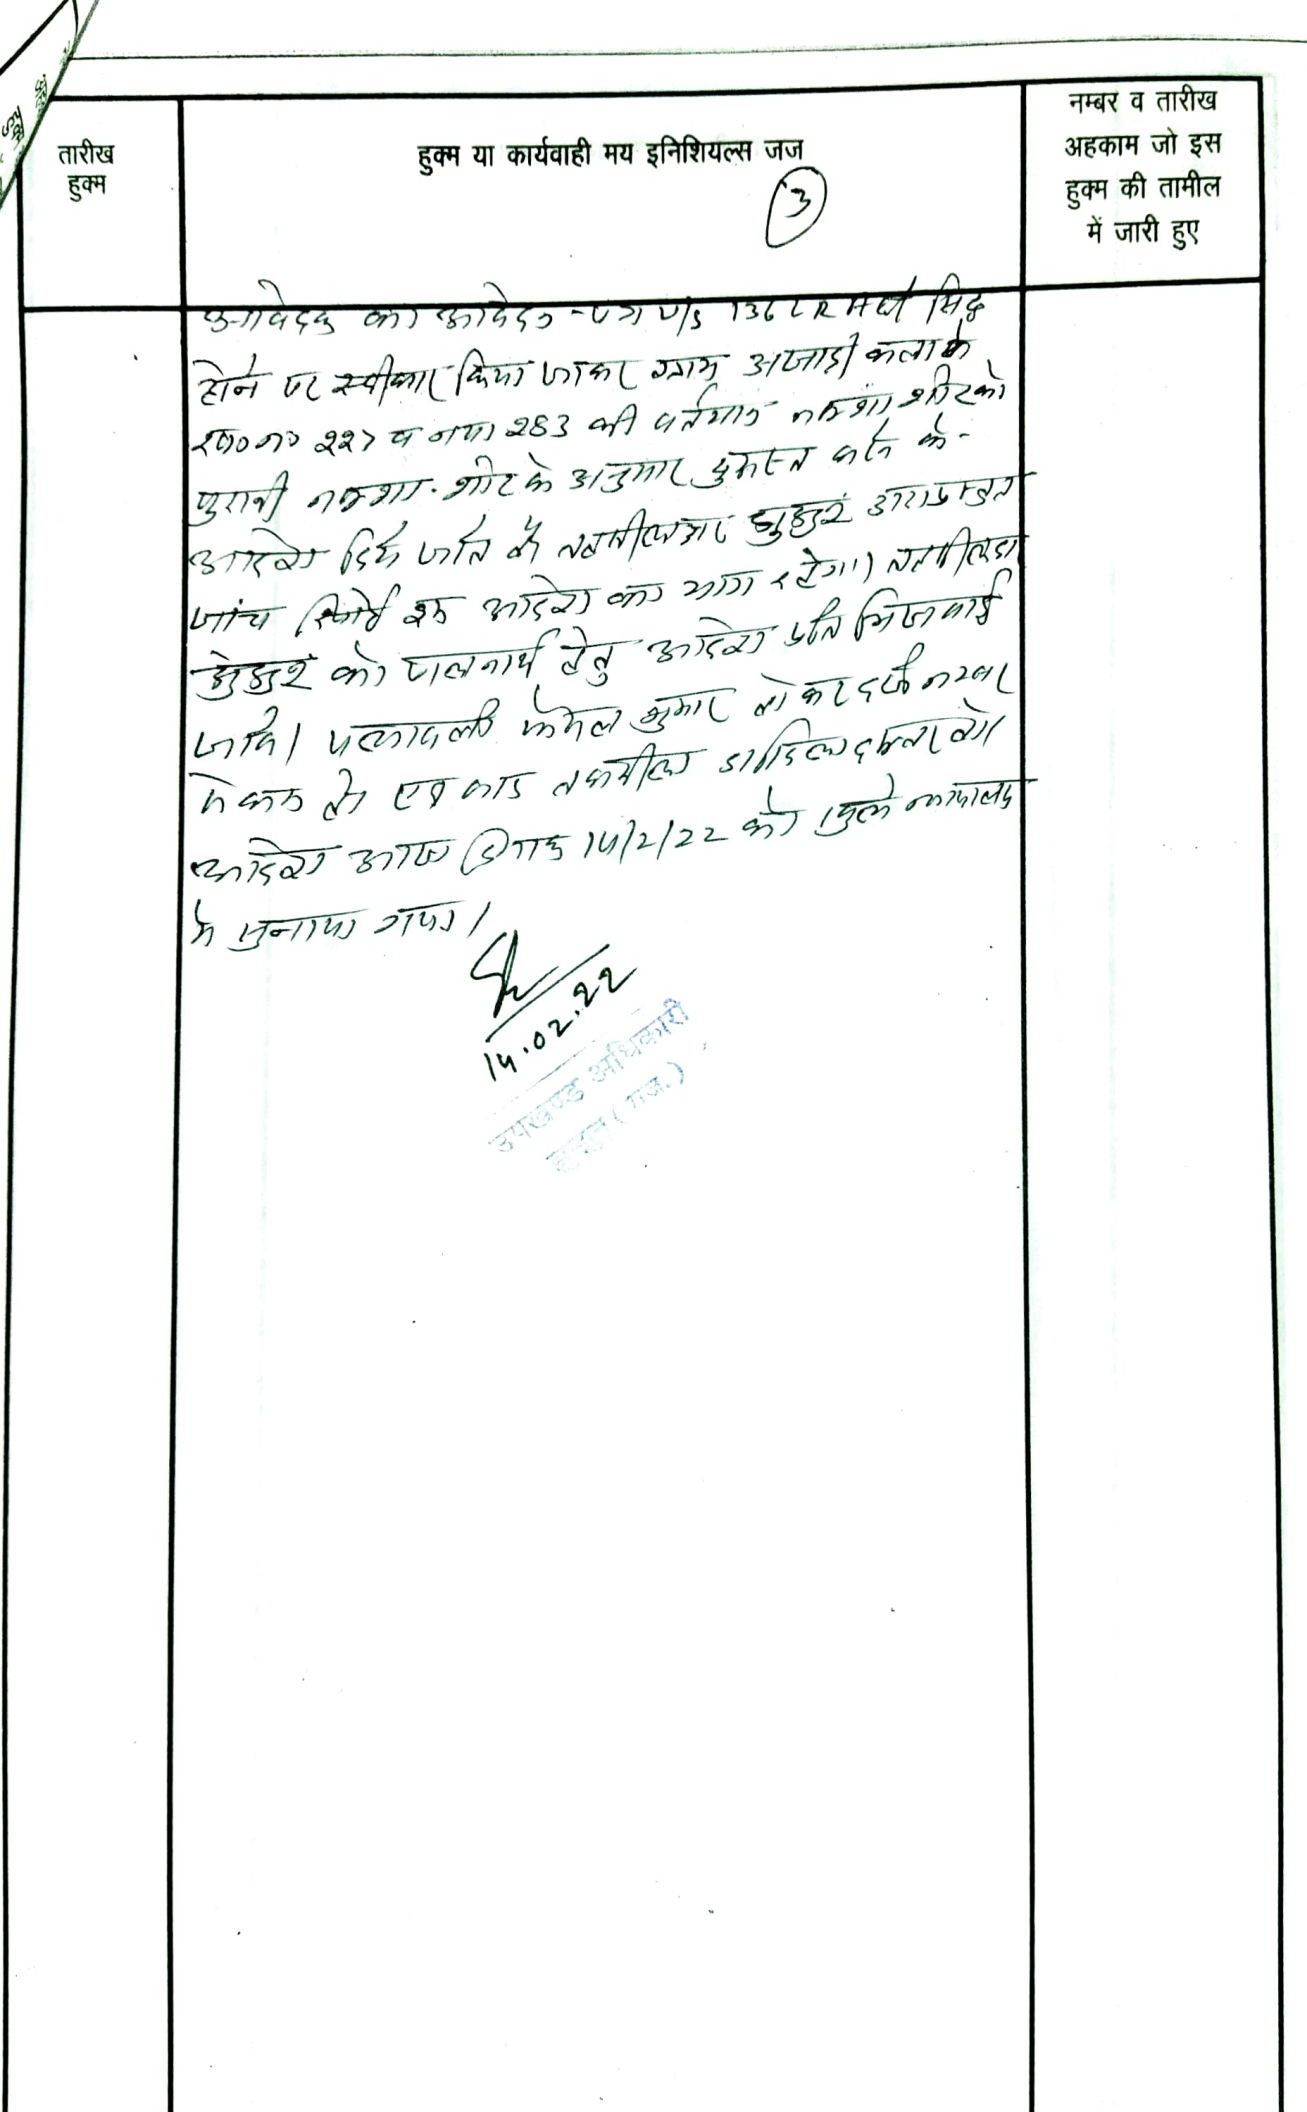 तारीख
हुक्म
हुक्म या कार्यवाही मय इनिशियल्स जज
3
नम्बर व तारीख
अहकाम जो इस
हुक्म की तामील
में जारी हुए
का आवेदन-पत्र U/S 136 LR सिद्ध
होने पर स्वीकार किया जाकर ग्राम अजाडी कला के
ख0न0 227 व नया 283 की वर्तमान नक्शा शीट को
पुरानी नक्शा शीट के अनुसार दुरूस्त करने के-
आदेश दिये जाते है तहसीलदार झुझुनूं द्वारा प्रस्तुत
जांच रिपोर्ट इस आदेश का भाग रहेगा। तहसीलदार
झुझुनूं को पालनार्थ हेतु आदेश प्रति भिजवाई
जावे। पत्रावली फैसल शुमार होकर दर्ज नम्बर
से कम हो एवं बाद तकमील दाखिल दफ्तर हो।
आदेश आज दिनांक 14/2/22 को खुले न्यायालय
मे सुनाया गया।
14.02.22
उपखण्ड अधिकारी
(राज.)